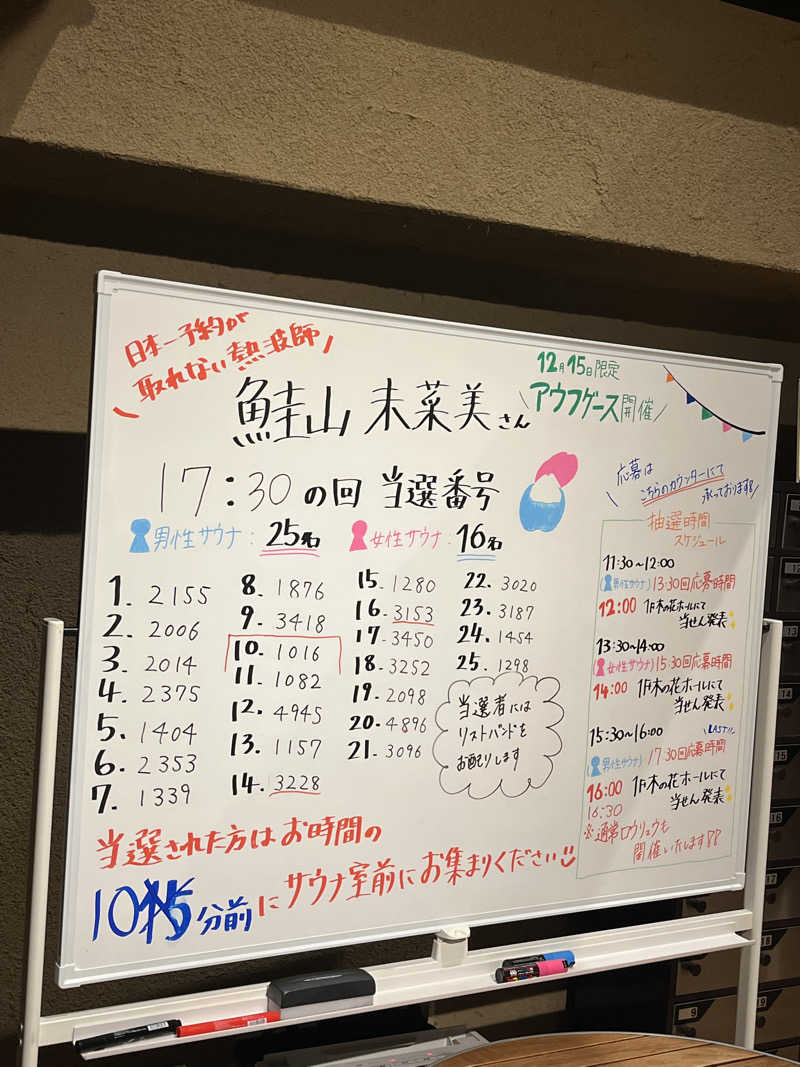 日本一予約が
取れない熱波師
鮭山 未菜美さん
12月15日限定
アウフグース開催
17:30の回 当選番号
男性サウナ:25名
女性サウナ:16名
1. 2155
2. 2006
3. 2014
4. 2375
5. 1404
6. 2353
7. 1339
8. 1876
9. 3418
10. 1016
11. 1082
12. 4945
13. 1157
14. 3228
15. 1280
16. 3153
17. 3450
18. 3252
19. 2098
20. 4896
21. 3096
22. 3020
23. 3187
24. 1454
25. 1298
当選者には
リストバンドを
お配りします
当選された方はお時間の
10分前にサウナ室前にお集まりください
応募は
こちらのカウンターにて
承っております!
抽選時間
スケジュール
11:30~12:00
(男性サウナ)13:30回応募時間
12:00 1F木の花ホールにて
当せん発表
13:30~14:00
(女性サウナ)15:30回応募時間
14:00 1F木の花ホールにて
当せん発表
15:30~16:00
LAST!!
(男性サウナ)17:30回応募時間
16:00 1F木の花ホールにて
当せん発表
16:30
※通常ロウリュウも
開催いたします!!
13
14
15
16
17
18
19
9